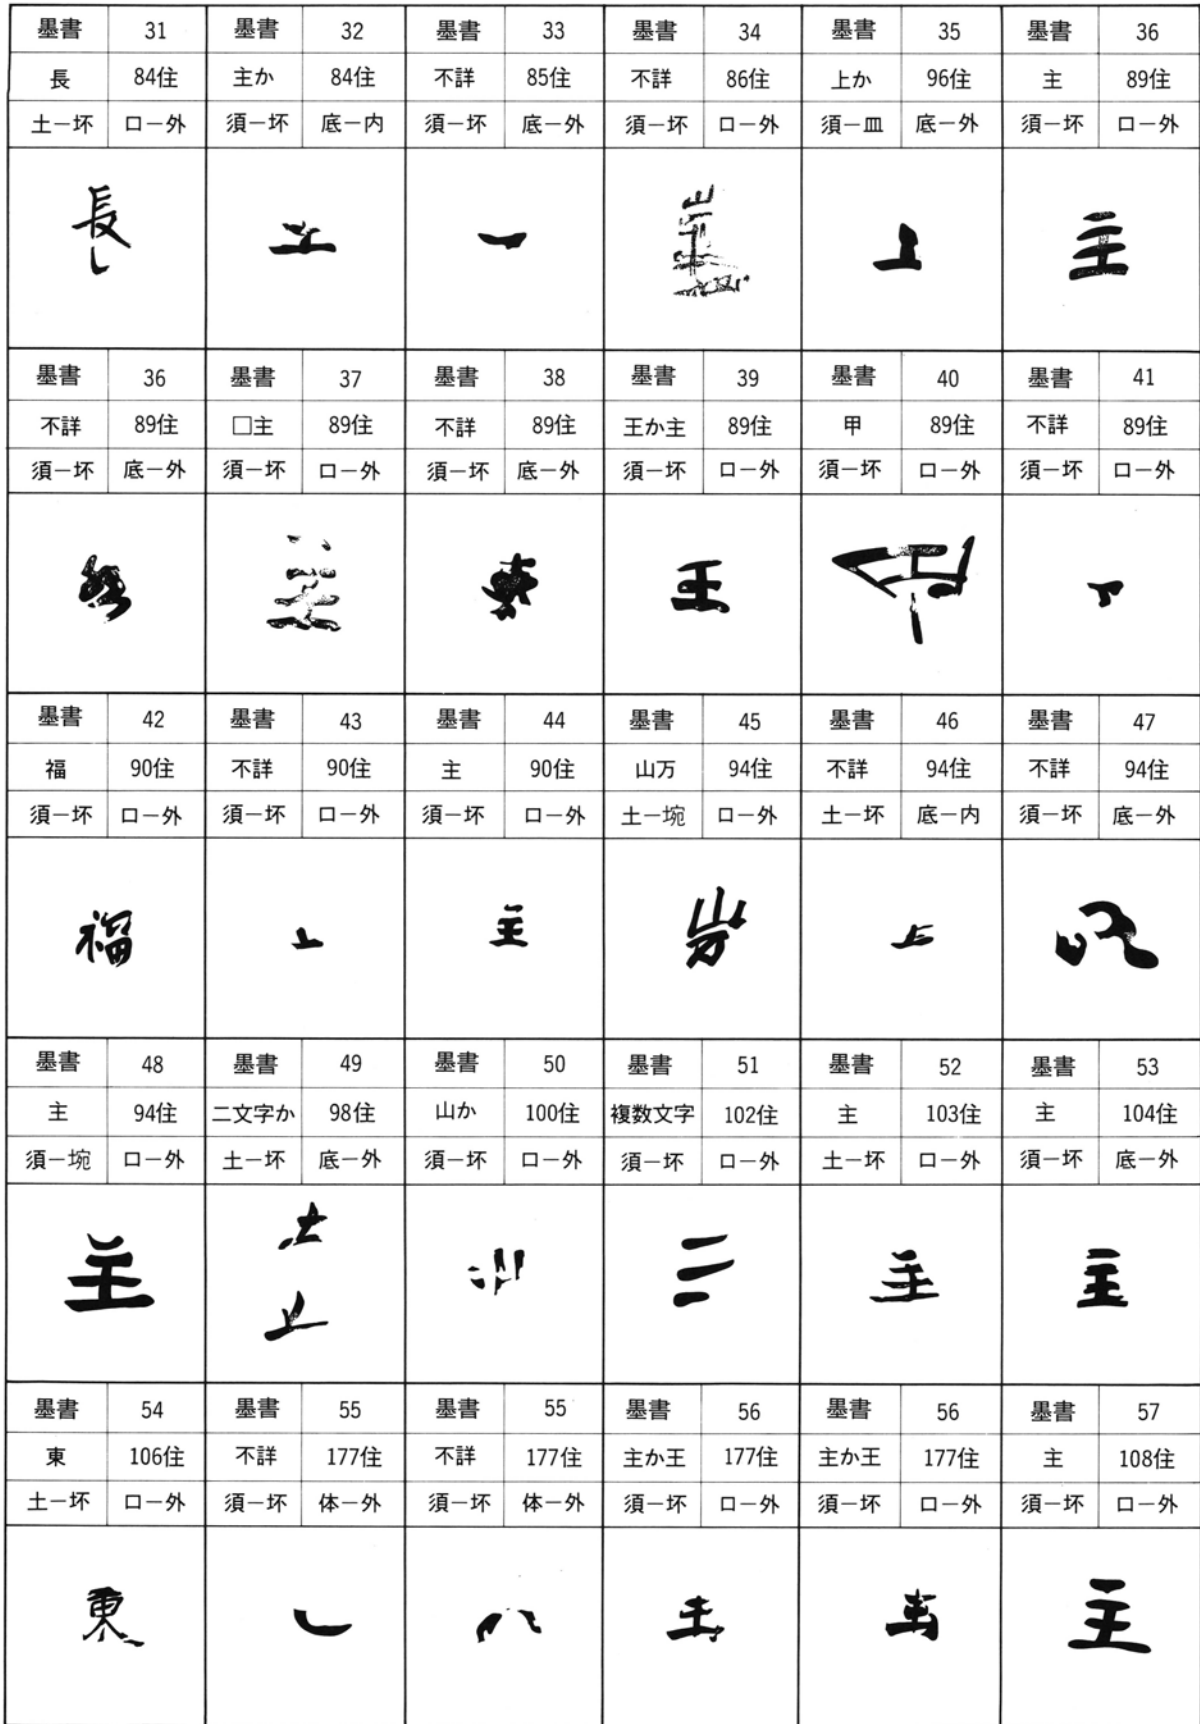 墨書 31 墨書 32 墨書 33 墨書 34 墨書 35 墨書 36
長 84住 主か 84住 不詳 85住 不詳 86住 上か 96住 主 89住
土一坏 口一外 須一坏 底一内 須一坏 底一外 須一坏 口一外 須一皿 底一外 須一坏 口一外
長 上 主
墨書 36 墨書 37 墨書 38 墨書 39 墨書 40 墨書 41
不詳 89住 □主 89住 不詳 89住 王か主 89住 甲 89住 不詳 89住
須一坏 底一外 須一坏 口一外 須一坏 底一外 須一坏 口一外 須一坏 口一外 須一坏 口一外
王 甲
墨書 42 墨書 43 墨書 44 墨書 45 墨書 46 墨書 47
福 90住 不詳 90住 主 90住 山万 94住 不詳 94住 不詳 94住
須一坏 口一外 須一坏 口一外 須一坏 口一外 土一埦 口一外 土一坏 底一内 須一坏 底一外
福 主 山万
墨書 48 墨書 49 墨書 50 墨書 51 墨書 52 墨書 53
主 94住 二文字か 98住 山か 100住 複数文字 102住 主 103住 主 104住
須一埦 口一外 土一坏 底一外 須一坏 口一外 須一坏 口一外 土一坏 口一外 須一坏 底一外
主 主 主
墨書 54 墨書 55 墨書 55 墨書 56 墨書 56 墨書 57
東 106住 不詳 177住 不詳 177住 主か王 177住 主か王 177住 主 108住
土一坏 口一外 須一坏 体一外 須一坏 体一外 須一坏 口一外 須一坏 口一外 須一坏 口一外
東 主